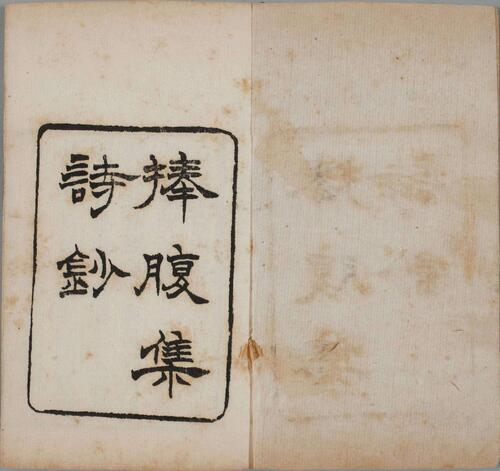 捧腹集
詩鈔